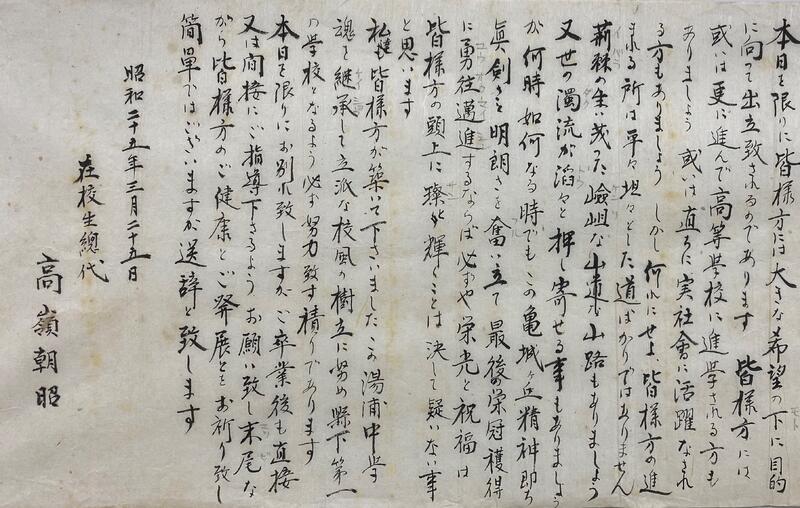 本日を限りに皆様方には大きな希望の下に目的
に向って出立致されるのであります 皆様方には
或いは更に進んで高等学校に進学される方も
ありましょう 或いは直ちに実社會に活躍なされ
る方もありましょう しかし何れにせよ皆様方の進
まれる所は平々坦々とした道ばかりではありません
荊棘の生い茂った嶮岨な山道も山路もありましょう
又世の濁流が滔々と押し寄せる事もありましょう
が何時如何なる時でもこの亀城ヶ丘精神即ち
眞剣さと明朗さを奮い立て最後の栄冠獲得
に勇往邁進するならば必ずや栄光と祝福は
皆様方の頭上に燦然輝くことは決して疑いない事
と思います
私達も皆様方が築いて下さいましたこの湯浦中学
魂を継承して立派な校風の樹立に努め縣下第一
の学校となるよう必ず努力致す積りであります
本日を限りにお別れ致しますがご卒業後も直接
又は間接にご指導下さるようお願い致し末尾な
がら皆様方のご健康とご発展とをお祈り致し
簡單ではございますが送辞と致します
昭和二十五年三月二十五日
在校生總代
高嶺朝昭